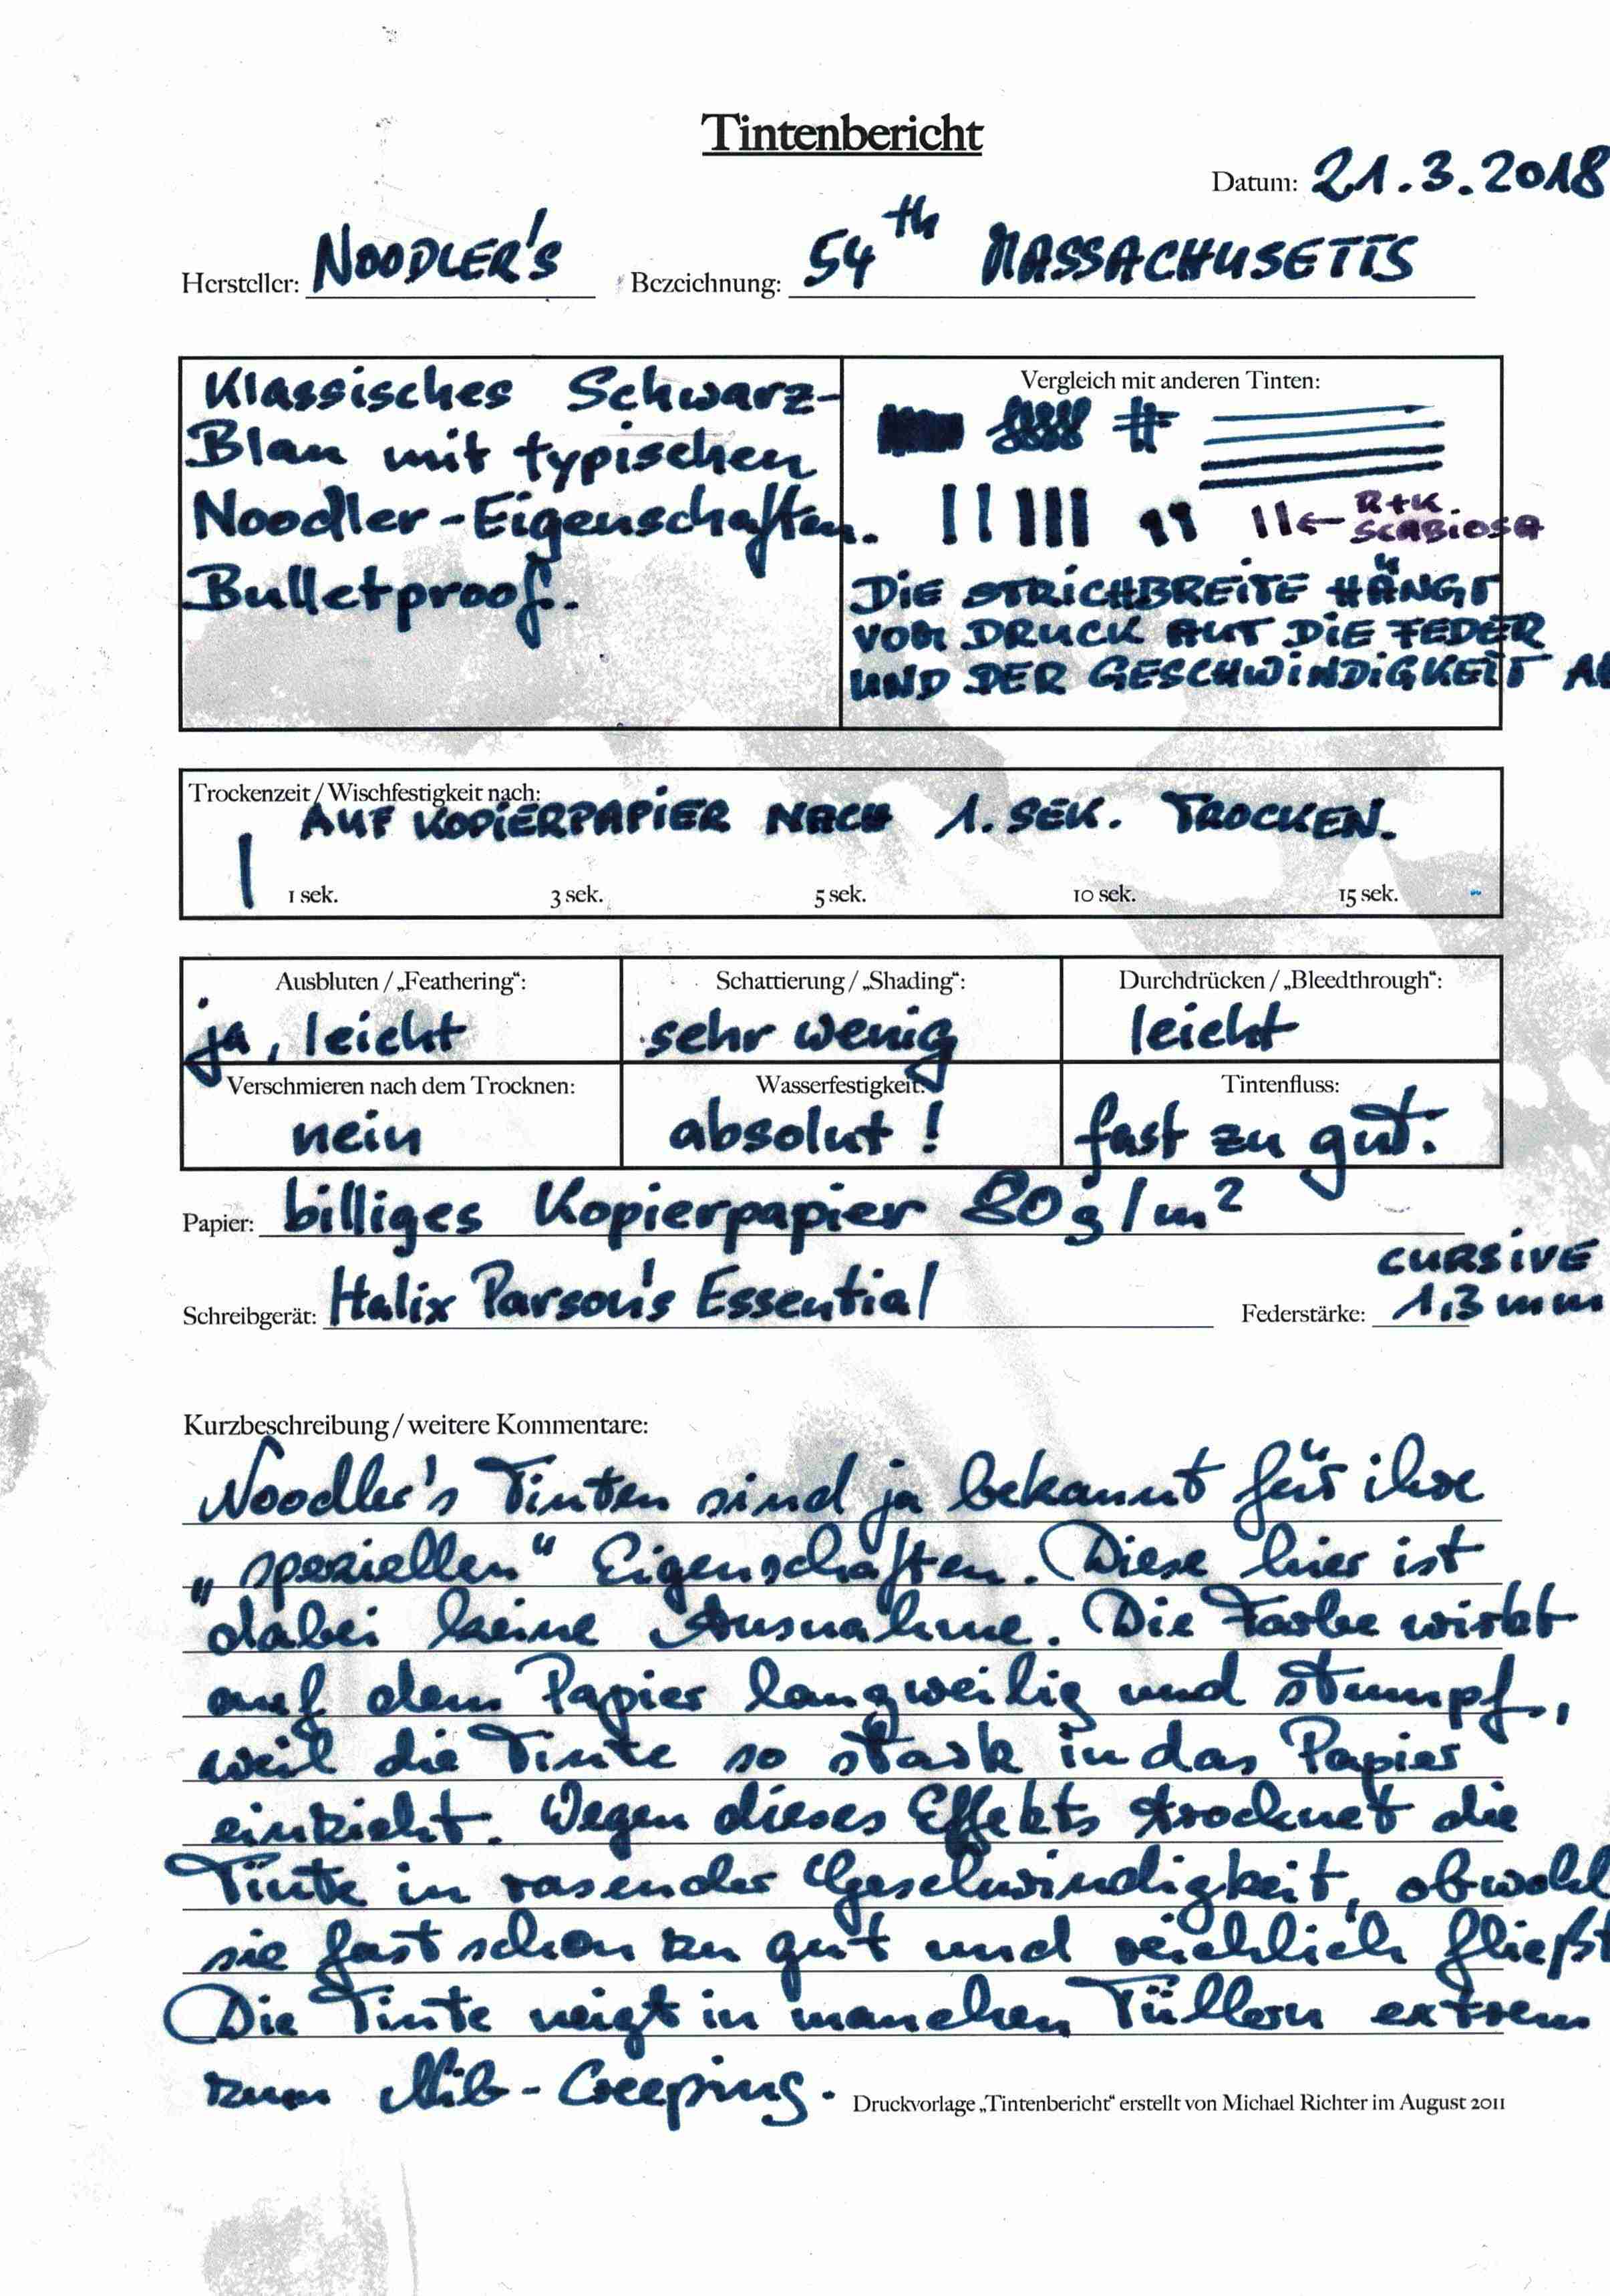 Tintenbericht
Datum: 21.3.2018
Hersteller: NOODLER'S Bezeichnung: 54th MASSACHUSETTS
Klassisches Schwarz-
Blau mit typischen
Noodler-Eigenschaften.
Bulletproof.
Vergleich mit anderen Tinten:
R+K.
SCABIOSA
DIE STRICHBREITE HÄNGT
VOM DRUCK AUF DIE FEDER
UND DER GESCHWINDIGKEIT AB
Trockenzeit / Wischfestigkeit nach:
AUF KOPIERPAPIER NACH 1. SEK. TROCKEN.
1 sek. 3 sek. 5 sek. 10 sek. 15 sek.
Ausbluten / „Feathering“: Schattierung / „Shading“: Durchdrücken / „Bleedthrough“:
ja, leicht sehr wenig leicht
Verschmieren nach dem Trocknen: Wasserfestigkeit: Tintenfluss:
nein absolut! fast zu gut.
Papier: billiges Kopierpapier 80g/m²
CURSIVE
Schreibgerät: Italix Parson's Essential Federstärke: 1,3 mm
Kurzbeschreibung / weitere Kommentare:
Noodler's Tinten sind ja bekannt für ihre
„speziellen“ Eigenschaften. Diese hier ist
dabei keine Ausnahme. Die Farbe wirkt
auf dem Papier langweilig und stumpf,
weil die Tinte so stark in das Papier
einzieht. Wegen dieses Effekts trocknet die
Tinte in rasender Geschwindigkeit, obwohl
sie fast schon zu gut und reichlich fließt
Die Tinte neigt in manchen Füllern extrem
zum Nib-Creeping.
Druckvorlage „Tintenbericht“ erstellt von Michael Richter im August 2011